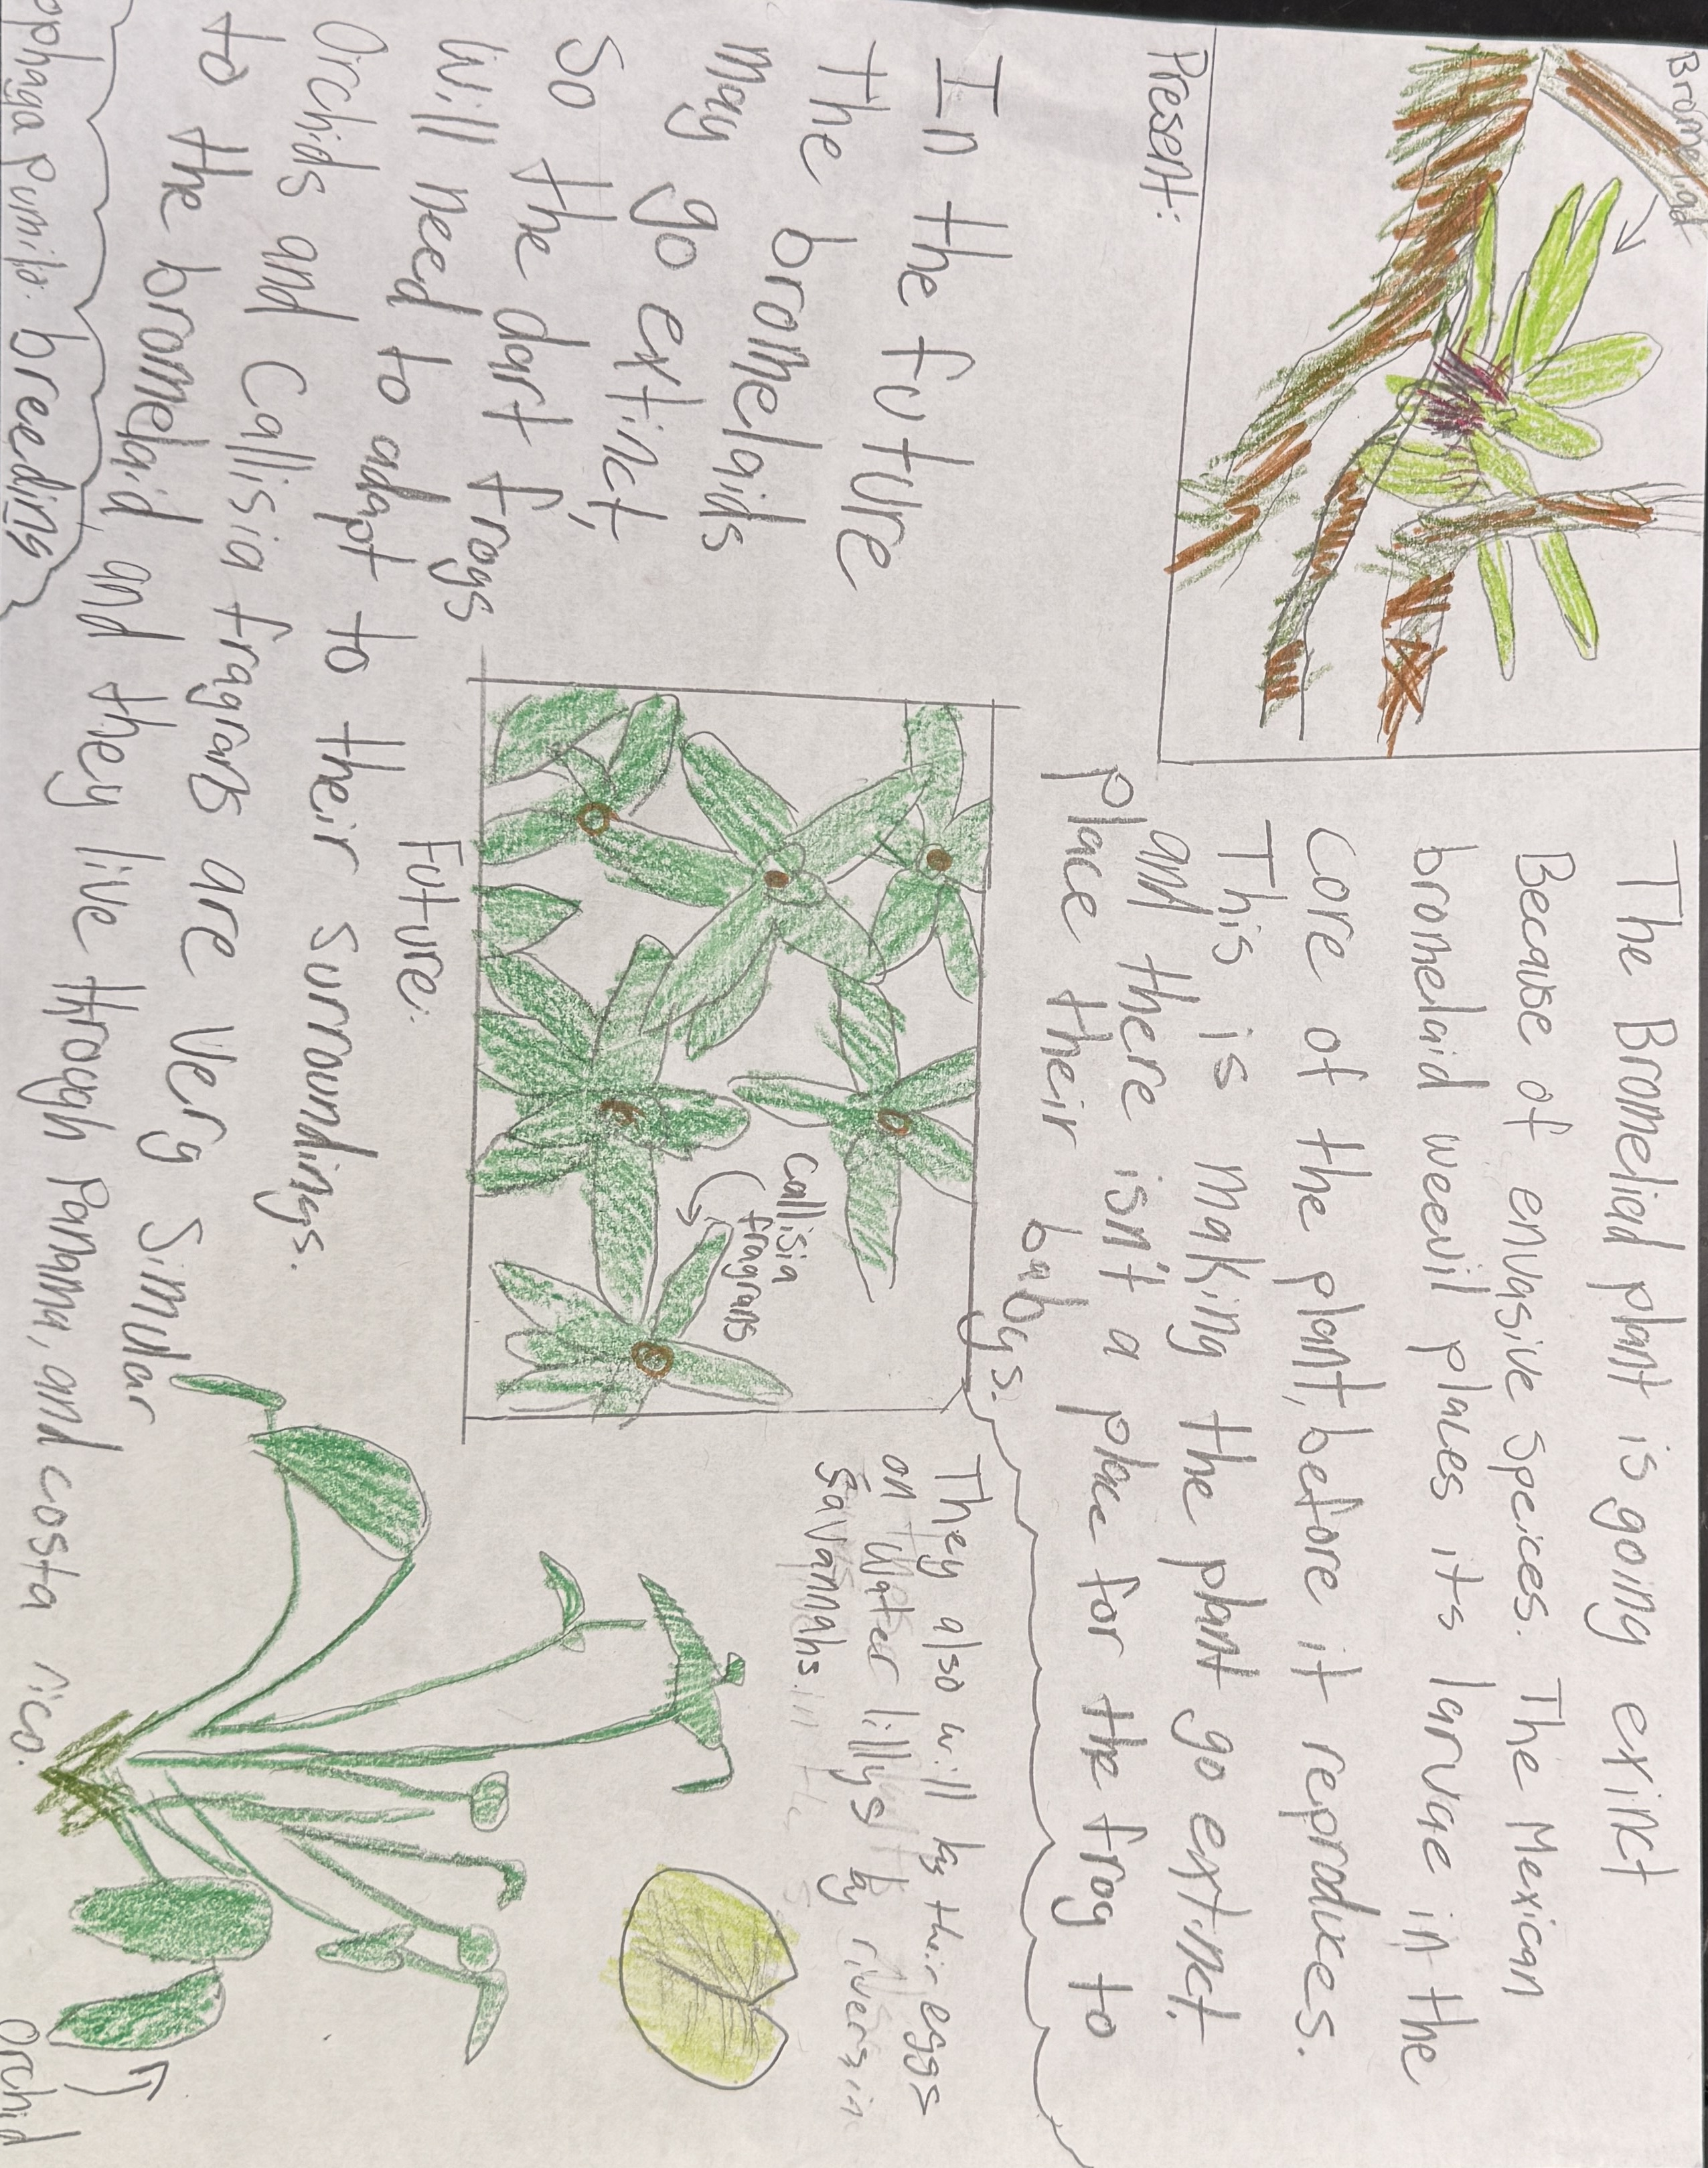 Bromeliad
Present:
The Bromeliad plant is going exinct
Because of envasive species. The Mexican
bromelaid weevil places its larvae in the
core of the plant, before it reproduces.
This is making the plant go extinct.
and there isn't a place for the frog to
place their babys.
In the future
the bromelaids
may go extinct,
so the dart frogs
will need to adapt to their surroundings.
Orchids and Callisia fragrans are very simular
to the bromelaid, and they live through Panama, and costa rico.
Callisia
fragrans
Future:
They also will lay their eggs
on water lillys by rivers in
savannahs.
Pumilo breeding
Orchid